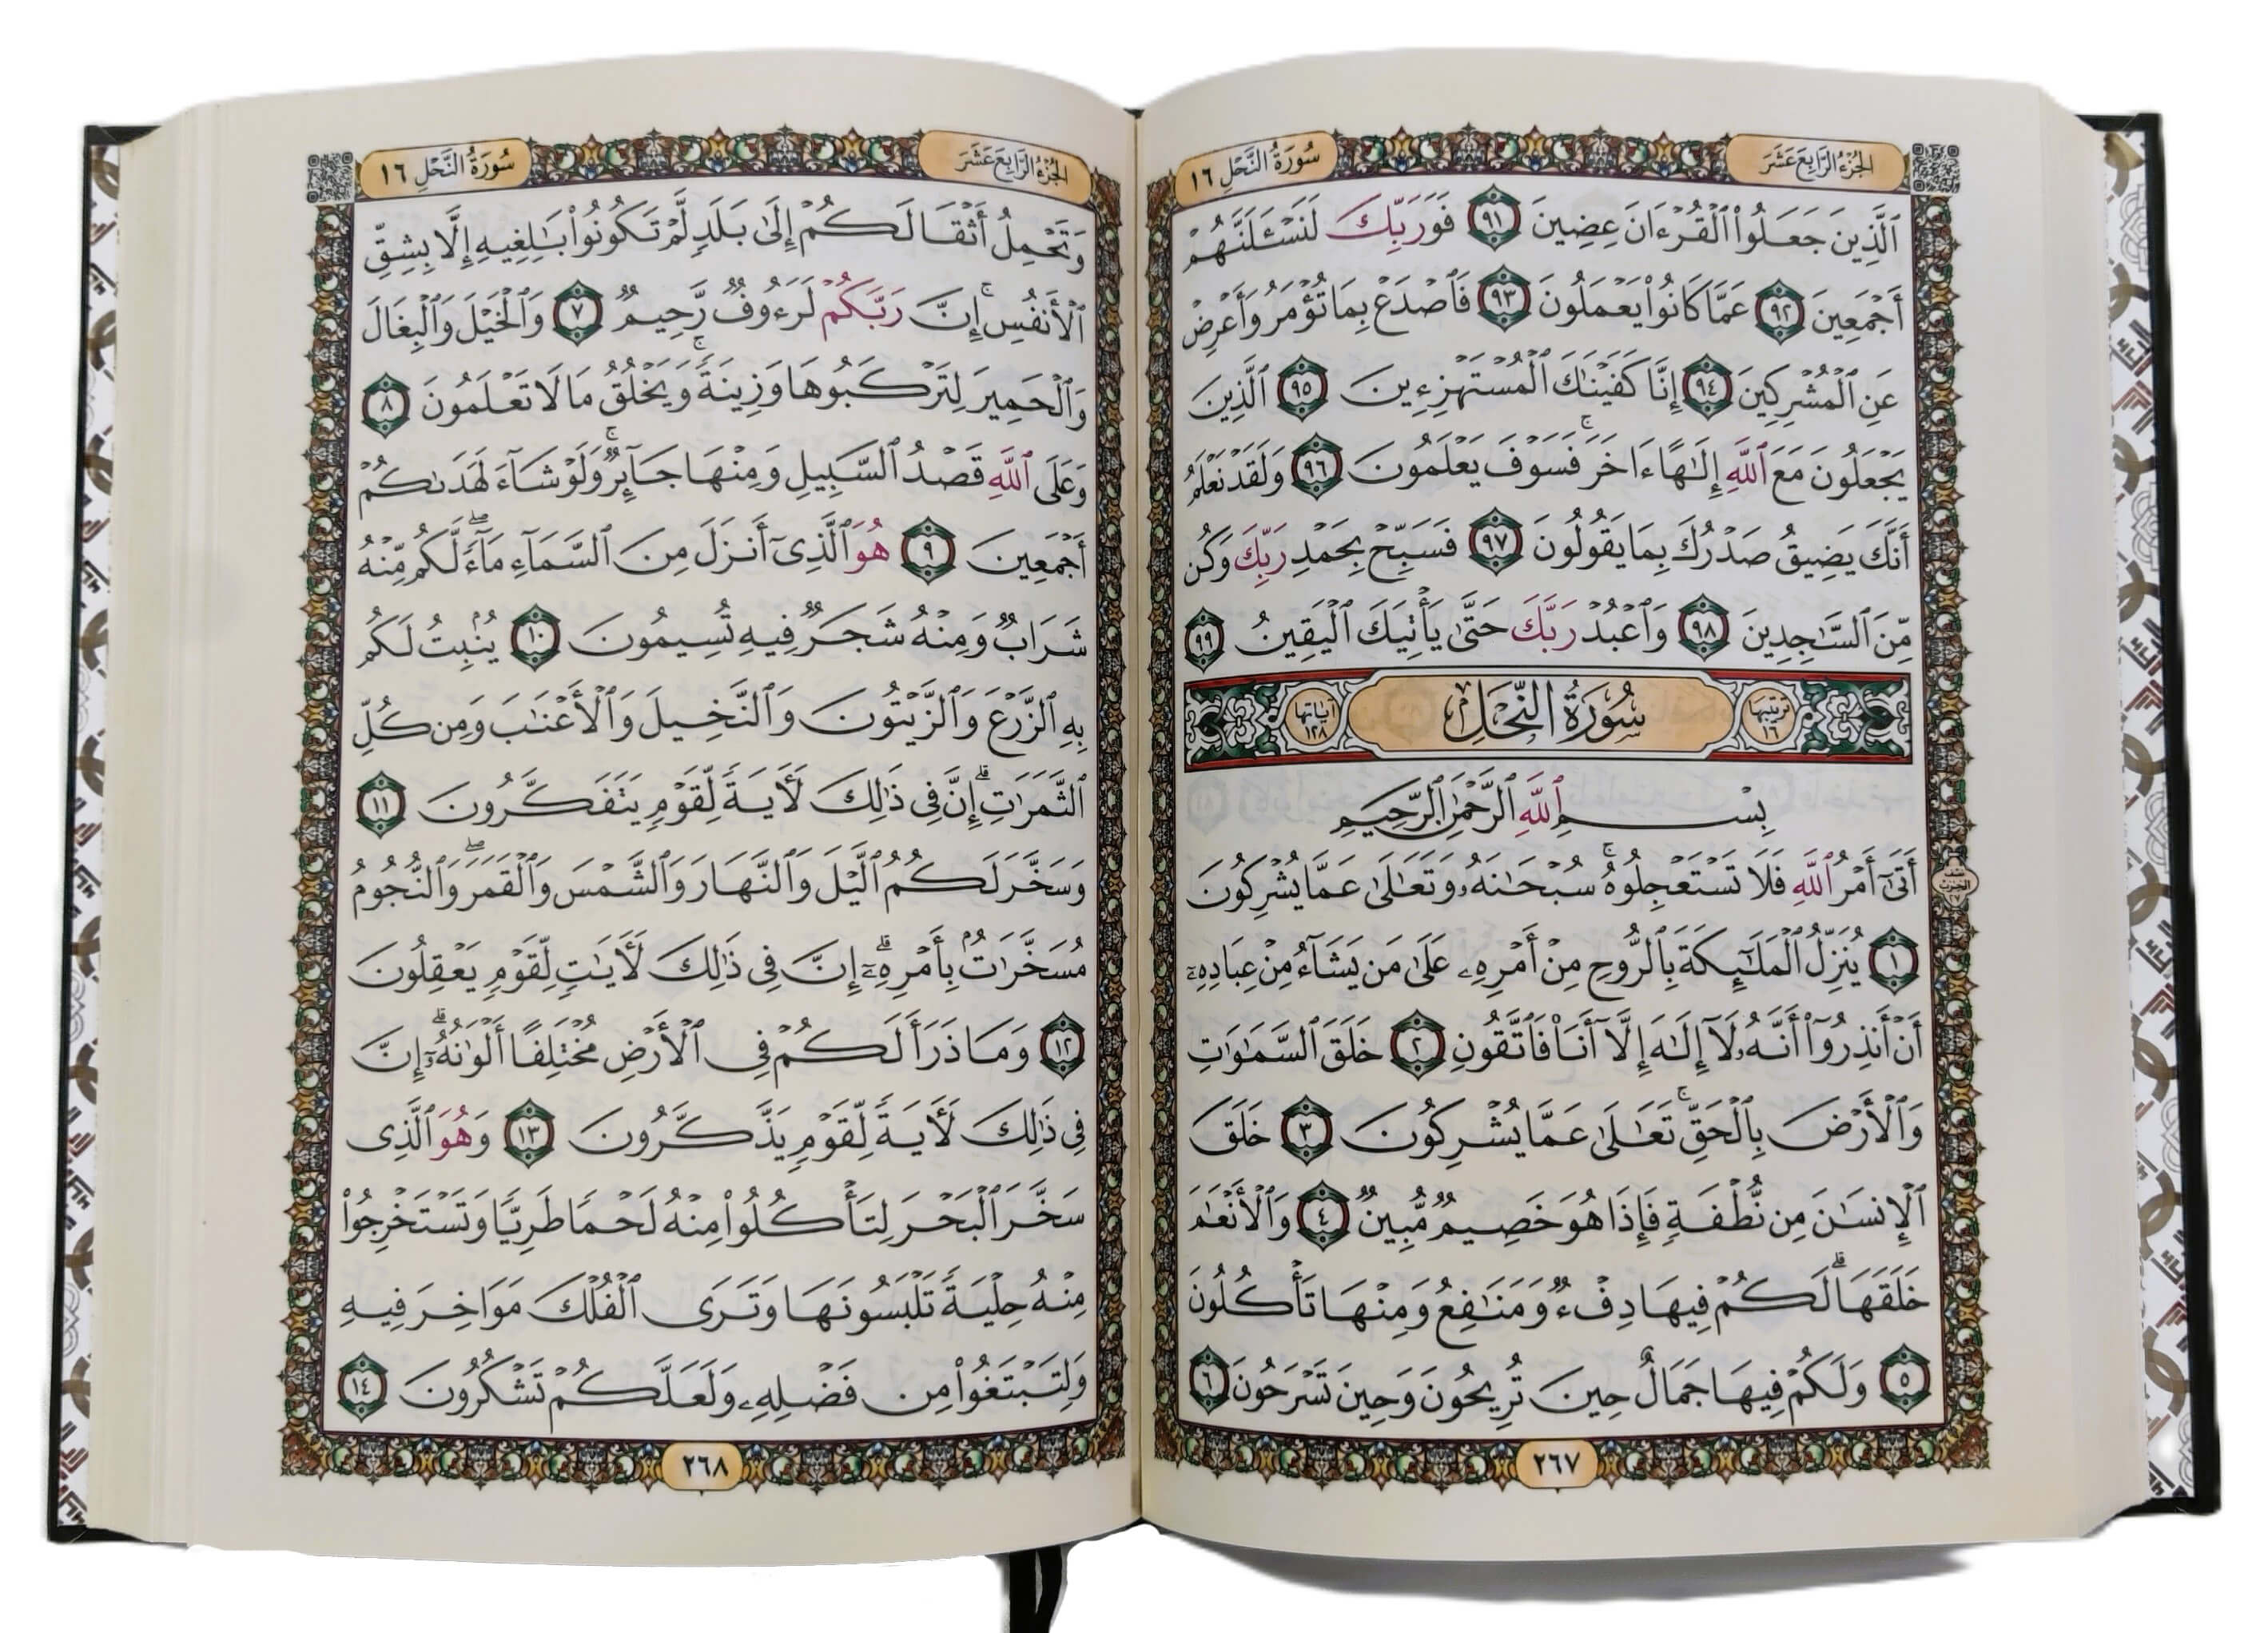 الجزء الرابع عشر
سورة النحل ١٦
ٱلَّذِينَ جَعَلُوا۟ ٱلْقُرْءَانَ عِضِينَ ٩١ فَوَرَبِّكَ لَنَسْـَٔلَنَّهُمْ
أَجْمَعِينَ ٩٢ عَمَّا كَانُوا۟ يَعْمَلُونَ ٩٣ فَٱصْدَعْ بِمَا تُؤْمَرُ وَأَعْرِضْ
عَنِ ٱلْمُشْرِكِينَ ٩٤ إِنَّا كَفَيْنَـٰكَ ٱلْمُسْتَهْزِءِينَ ٩٥ ٱلَّذِينَ
يَجْعَلُونَ مَعَ ٱللَّهِ إِلَـٰهًا ءَاخَرَ ۚ فَسَوْفَ يَعْلَمُونَ ٩٦ وَلَقَدْ نَعْلَمُ
أَنَّكَ يَضِيقُ صَدْرُكَ بِمَا يَقُولُونَ ٩٧ فَسَبِّحْ بِحَمْدِ رَبِّكَ وَكُن
مِّنَ ٱلسَّـٰجِدِينَ ٩٨ وَٱعْبُدْ رَبَّكَ حَتَّىٰ يَأْتِيَكَ ٱلْيَقِينُ ٩٩
ترتيبها ١٦ سُورَةُ النَّحْلِ آياتها ١٢٨
بِسْمِ ٱللَّهِ ٱلرَّحْمَـٰنِ ٱلرَّحِيمِ
أَتَىٰٓ أَمْرُ ٱللَّهِ فَلَا تَسْتَعْجِلُوهُ ۚ سُبْحَـٰنَهُۥ وَتَعَـٰلَىٰ عَمَّا يُشْرِكُونَ
١ يُنَزِّلُ ٱلْمَلَـٰٓئِكَةَ بِٱلرُّوحِ مِنْ أَمْرِهِۦ عَلَىٰ مَن يَشَآءُ مِنْ عِبَادِهِۦٓ
أَنْ أَنذِرُوٓا۟ أَنَّهُۥ لَآ إِلَـٰهَ إِلَّآ أَنَا۠ فَٱتَّقُونِ ٢ خَلَقَ ٱلسَّمَـٰوَٰتِ
وَٱلْأَرْضَ بِٱلْحَقِّ ۚ تَعَـٰلَىٰ عَمَّا يُشْرِكُونَ ٣ خَلَقَ
ٱلْإِنسَـٰنَ مِن نُّطْفَةٍ فَإِذَا هُوَ خَصِيمٌ مُّبِينٌ ٤ وَٱلْأَنْعَـٰمَ
خَلَقَهَا ۗ لَكُمْ فِيهَا دِفْءٌ وَمَنَـٰفِعُ وَمِنْهَا تَأْكُلُونَ
٥ وَلَكُمْ فِيهَا جَمَالٌ حِينَ تُرِيحُونَ وَحِينَ تَسْرَحُونَ ٦
٢٦٧
الجزء الرابع عشر
سورة النحل ١٦
وَتَحْمِلُ أَثْقَالَكُمْ إِلَىٰ بَلَدٍ لَّمْ تَكُونُوا۟ بَـٰلِغِيهِ إِلَّا بِشِقِّ
ٱلْأَنفُسِ ۚ إِنَّ رَبَّكُمْ لَرَءُوفٌ رَّحِيمٌ ٧ وَٱلْخَيْلَ وَٱلْبِغَالَ
وَٱلْحَمِيرَ لِتَرْكَبُوهَا وَزِينَةً ۚ وَيَخْلُقُ مَا لَا تَعْلَمُونَ ٨
وَعَلَى ٱللَّهِ قَصْدُ ٱلسَّبِيلِ وَمِنْهَا جَآئِرٌ ۚ وَلَوْ شَآءَ لَهَدَىٰكُمْ
أَجْمَعِينَ ٩ هُوَ ٱلَّذِىٓ أَنزَلَ مِنَ ٱلسَّمَآءِ مَآءً ۖ لَّكُم مِّنْهُ
شَرَابٌ وَمِنْهُ شَجَرٌ فِيهِ تُسِيمُونَ ١٠ يُنۢبِتُ لَكُم
بِهِ ٱلزَّرْعَ وَٱلزَّيْتُونَ وَٱلنَّخِيلَ وَٱلْأَعْنَـٰبَ وَمِن كُلِّ
ٱلثَّمَرَٰتِ ۗ إِنَّ فِى ذَٰلِكَ لَـَٔايَةً لِّقَوْمٍ يَتَفَكَّرُونَ ١١
وَسَخَّرَ لَكُمُ ٱلَّيْلَ وَٱلنَّهَارَ وَٱلشَّمْسَ وَٱلْقَمَرَ ۖ وَٱلنُّجُومُ
مُسَخَّرَٰتٌۢ بِأَمْرِهِۦٓ ۗ إِنَّ فِى ذَٰلِكَ لَـَٔايَـٰتٍ لِّقَوْمٍ يَعْقِلُونَ
١٢ وَمَا ذَرَأَ لَكُمْ فِى ٱلْأَرْضِ مُخْتَلِفًا أَلْوَٰنُهُۥٓ ۗ إِنَّ
فِى ذَٰلِكَ لَـَٔايَةً لِّقَوْمٍ يَذَّكَّرُونَ ١٣ وَهُوَ ٱلَّذِى
سَخَّرَ ٱلْبَحْرَ لِتَأْكُلُوا۟ مِنْهُ لَحْمًا طَرِيًّا وَتَسْتَخْرِجُوا۟
مِنْهُ حِلْيَةً تَلْبَسُونَهَا وَتَرَى ٱلْفُلْكَ مَوَاخِرَ فِيهِ
وَلِتَبْتَغُوا۟ مِن فَضْلِهِۦ وَلَعَلَّكُمْ تَشْكُرُونَ ١٤
٢٦٨